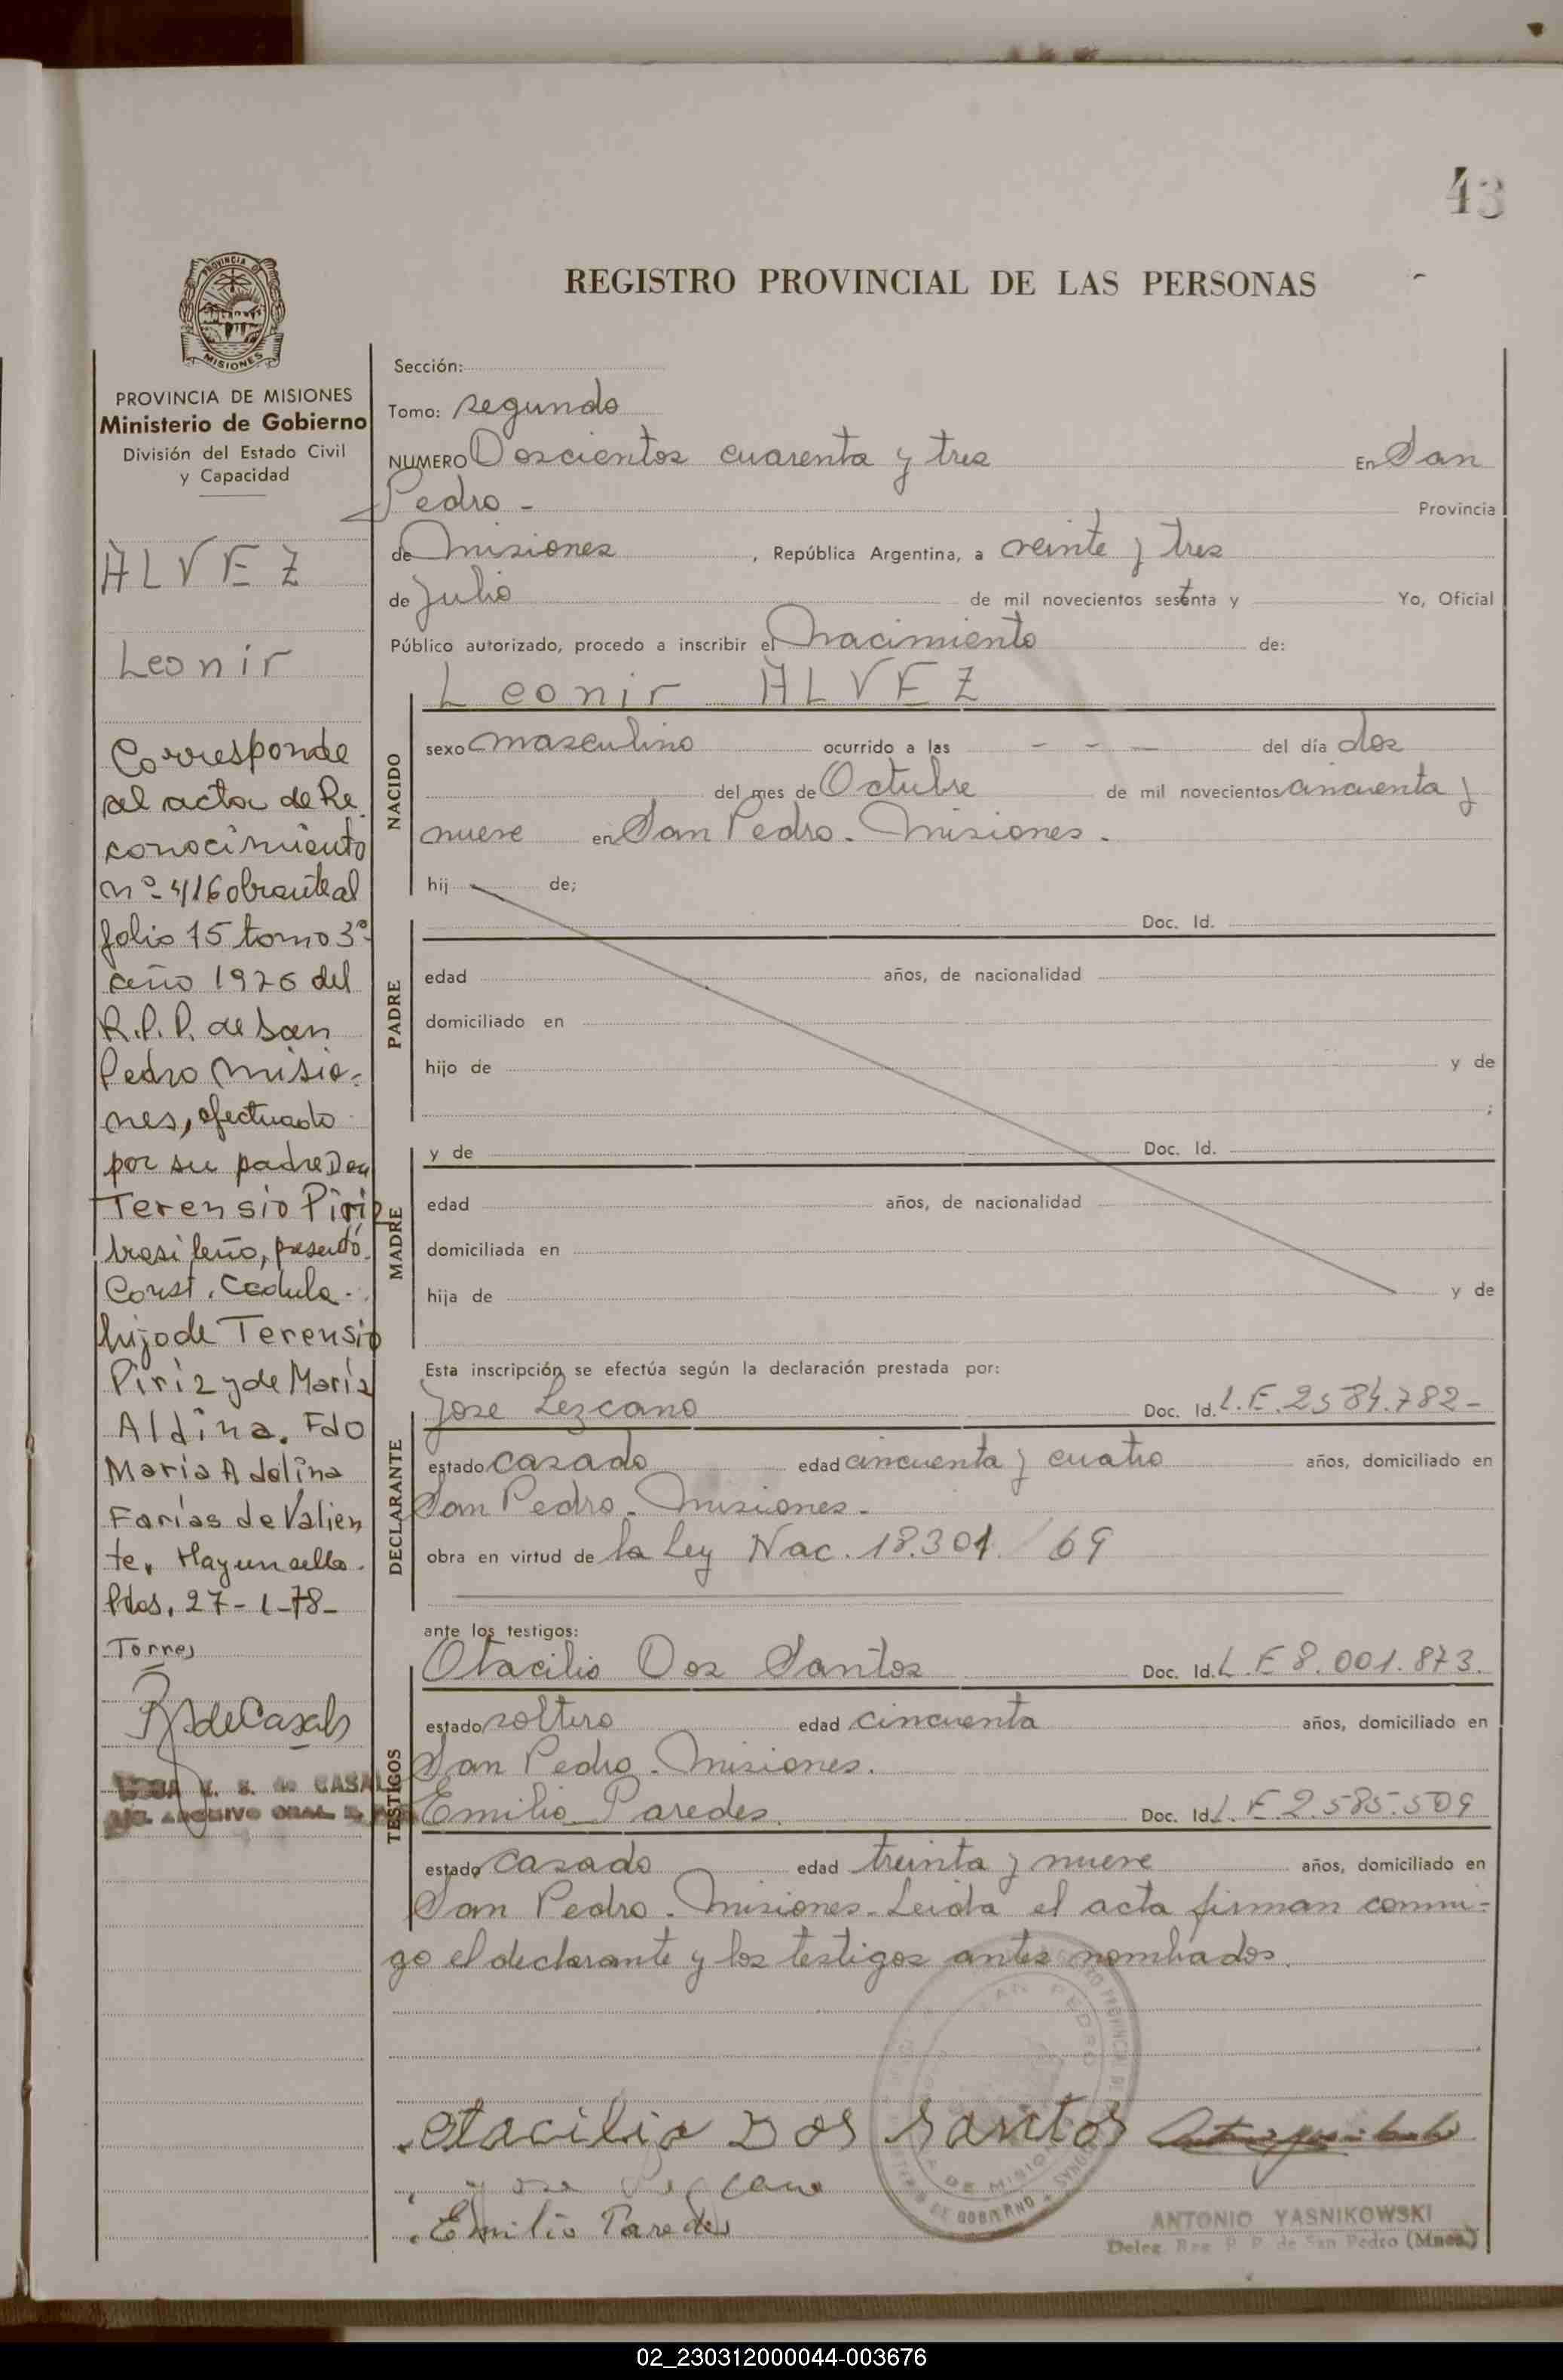 43
REGISTRO PROVINCIAL DE LAS PERSONAS
PROVINCIA DE
MISIONES
PROVINCIA DE MISIONES
Ministerio de Gobierno
División del Estado Civil
y Capacidad
ALVEZ
Leonir
Corresponde
al acta de Re
conocimiento
nº 416 obrante al
folio 15 tomo 3º
año 1976 del
R.P.P. de San
Pedro Misio-
nes, efectuado
por su padre Don
Terensio Piriz
brasileño, presentó
Const. Cedula.
hijo de Terensio
Piriz y de María
Aldina. Fdo
María Adolina
Farías de Valien
te. Hay un sello.
Pdas. 27-1-78-
Torres
de CASAL
ARCHIVO GRAL
Sección:
Tomo: segundo
NUMERO Doscientos cuarenta y tres En San
Pedro - Provincia
de Misiones , República Argentina, a veinte y tres
de Julio de mil novecientos setenta y Yo, Oficial
Público autorizado, procedo a inscribir el Nacimiento de:
Leonir ALVEZ
NACIDO
sexo masculino ocurrido a las - - - del día dos
del mes de Octubre de mil novecientos cincuenta y
nueve en San Pedro - Misiones.
hij de;
PADRE
Doc. Id.
edad años, de nacionalidad
domiciliado en
hijo de y de
;
MADRE
y de Doc. Id.
edad años, de nacionalidad
domiciliada en
hija de y de
Esta inscripción se efectúa según la declaración prestada por:
DECLARANTE
Jose Lezcano Doc. Id. L.E. 2584.782-
estado casado edad cincuenta y cuatro años, domiciliado en
San Pedro - Misiones.
obra en virtud de la Ley Nac. 18.301/69
ante los testigos:
TESTIGOS
Otacilio Dos Santos Doc. Id. L.E 8.001.873.
estado soltero edad cincuenta años, domiciliado en
San Pedro - Misiones.
Emilio Paredes Doc. Id. L.E. 2.585.509
estado casado edad treinta y nueve años, domiciliado en
San Pedro - Misiones - Leida el acta firman conmi-
go el declarante y los testigos antes nombrados.
SAN PEDRO
DE GOBIERNO
otacilio Dos Santos
Jose Lezcano
Emilio Paredes
ANTONIO YASNIKOWSKI
Deleg. Reg. P. P. de San Pedro (Mnes.)
02_230312000044-003676